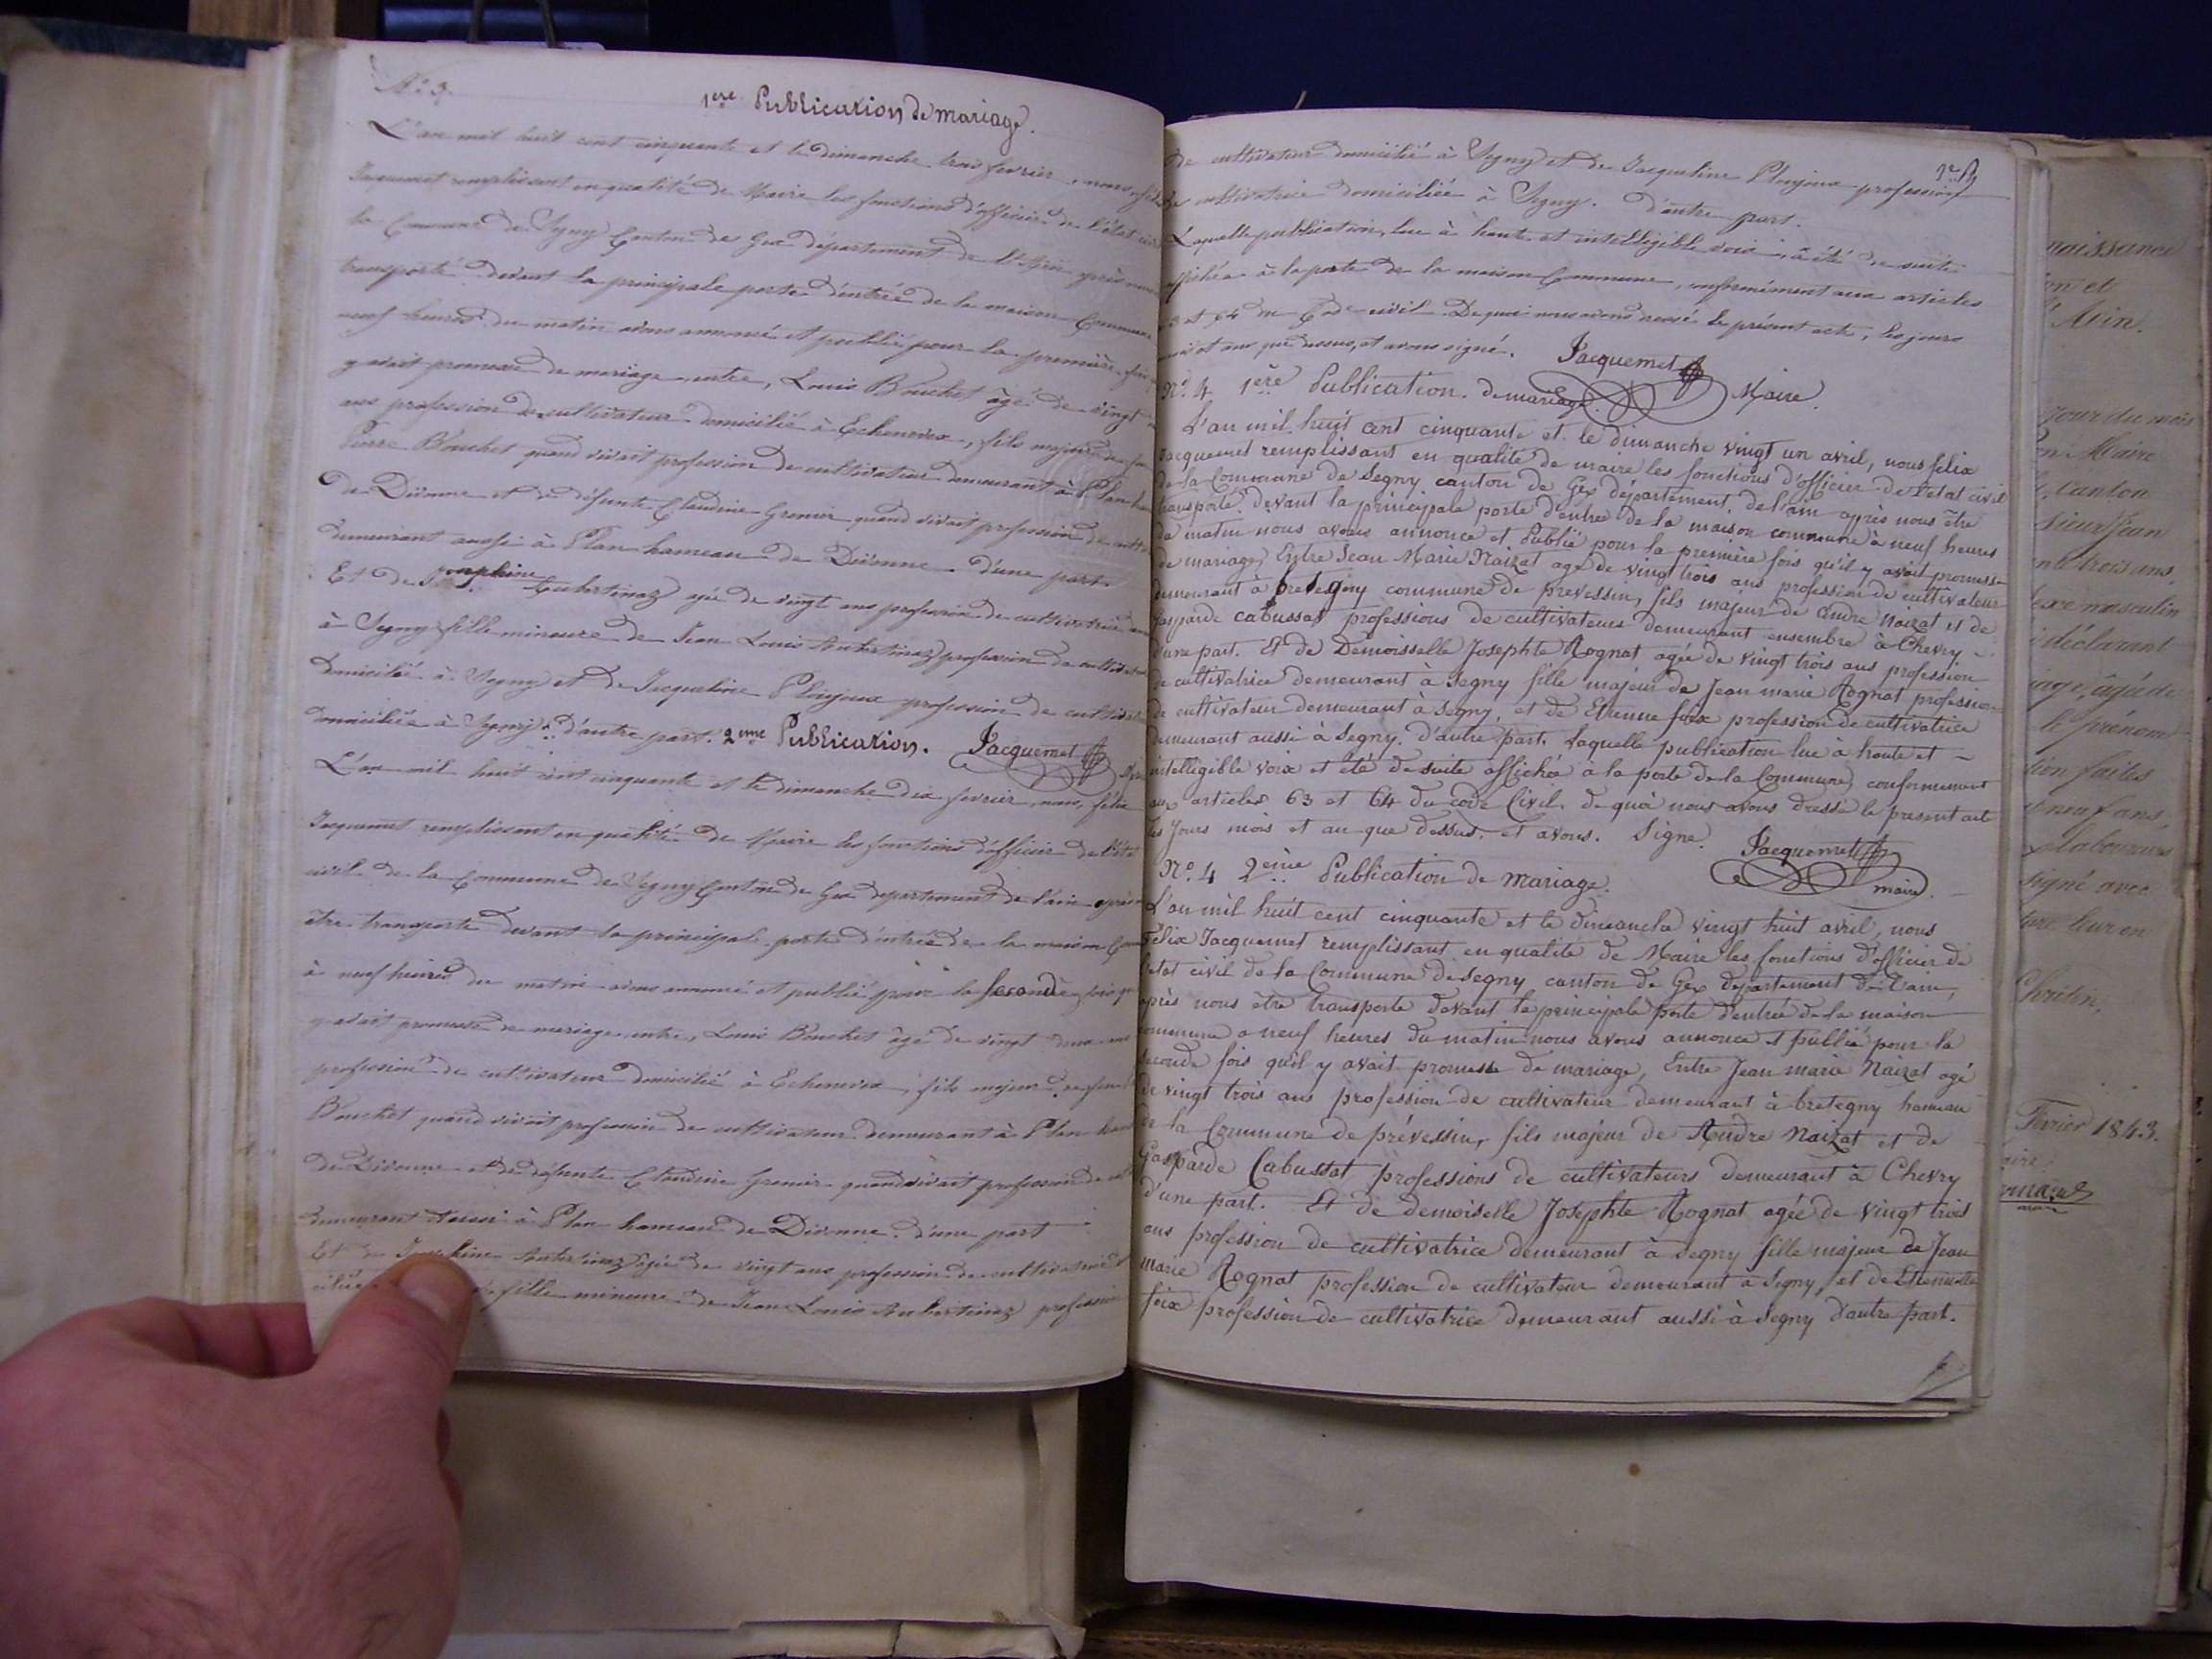 N° 3.
1ere Publication de mariage.
L'an mil huit cent cinquante et le dimanche trois fevrier, nous
Jacquemet remplissant en qualité de Maire les fonctions d'officier de l'état
la Commune de Segny Canton de Gex département de l'Ain après nous
transporté devant la principale porte d'entrée de la maison Commune
neuf heures du matin avons annoncé et publié pour la première fois
y avait promesse de mariage, entre, Louis Bouchet âgé de vingt
ans profession de cultivateur domicilié à Echenevex, fils majeur de
Pierre Bouchet quand vivait profession de cultivateur demeurant à Plan
de Divonne et de défunte Claudine Grenier quand vivait profession de
demeurant aussi à Plan hameau de Divonne. d'une part.
Et de Josephine Aubertinaz agée de vingt ans profession de cultivatrice
à Segny fille mineure de Jean Louis Aubertinaz profession de cultivateur
domicilié à Segny et de Jacqueline Plonjoux profession de
domiciliée à Segny. d'autre part. 2me Publication. Jacquemet
L'an mil huit cent cinquante et le dimanche dix fevrier, nous, félix
Jacquemet remplissant en qualité de Maire les fonctions d'officier de l'état
civil de la Commune de Segny Canton de Gex departement de l'ain après
être transporté devant la principale porte d'entrée de la maison
à neuf heures du matin avons annoncé et publié pour la seconde fois
y avait promesse de mariage, entre, Louis Bouchet âgé de vingt deux
profession de cultivateur domicilié à Echenevex, fils majeur de
Bouchet quand vivait profession de cultivateur demeurant à Plan
de Divonne et de défunte Claudine Grenier quand vivait profession de
demeurant aussi à Plan hameau de Divonne. d'une part
Et de Aubertinaz agée de vingt ans profession de cultivatrice
fille mineure de Jean Louis Aubertinaz profession
de cultivateur domicilié à Segny et de Jacqueline Plonjoux profession
de cultivatrice domiciliée à Segny. d'autre part.
Laquelle publication, lue à haute et intelligible voix, à été de suite
affichée à la porte de la maison Commune, conformément aux articles
63 et 64 du Code civil. De quoi nous avons dressé le présent acte, les jours
mois et an que dessus, et avons signé. Jacquemet
Maire.
N° 4 1ère Publication. de mariage.
L'an mil huit cent cinquante et le dimanche vingt un avril, nous félix
Jacquemet remplissant en qualité de maire les fonctions d'officier de l'état civil
de la Commune de Segny canton de Gex département de l'ain après nous être
transporté devant la principale porte d'entrée de la maison commune à neuf heures
de matin nous avons annonce et Publié pour la première fois qu'il y avait promesse
de mariage, Entre Jean Marie Naizat age de vingt trois ans profession de cultivateur
demeurant à commune de prevessin, fils majeur de Andre Naizat et de
Gasparde cabussat professions de cultivateurs demeurant ensembre à Chevry
d'une part. Et de Demoisselle Josephte Rognat agée de vingt trois ans profession
de cultivatrice demeurant à Segny fille majeur de Jean marie Rognat profession
de cultivateur demeurant à Segny, et de Etienne foix profession de cultivatrice
demeurant aussi à Segny. d'autre part. Laquelle publication lue à haute et
intelligible voix et été de suite affichée à la porte de la Commune, conformement
aux articles 63 et 64 du code Civil. de quoi nous avons dressé le present acte
les Jours mois et an que dessus. et avons. Signe. Jacquemet
maire.
N° 4 2eme Publication de mariage.
L'an mil huit cent cinquante et le Dimanche vingt huit avril, nous
Félix Jacquemet remplissant en qualite de Maire les fonctions d'officier de
l'etat civil de la Commune de Segny canton de Gex departement de l'ain,
après nous être transporte devant la principale porte d'entrée de la maison
commune a neuf heures du matin nous avons annonce et publié pour la
seconde fois qu'il y avait promesse de mariage, Entre Jean maria Naizat agé
de vingt trois ans profession de cultivateur demeurant à bretegny hameau
de la Commune de prévessin, fils majeur de Andre Naizat et de
Gasparde Cabussat professions de cultivateurs demeurant à Chevry
d'une part. Et de demoiselle Josephte Rognat agée de vingt trois
ans profession de cultivatrice demeurant à Segny fille majeur de Jean
marie Rognat profession de cultivateur demeurant a Segny, et de Etiennette
foix profession de cultivatrice demeurant aussi à Segny d'autre part.
naissance
on et
Ain.
jour du mois
Maire
canton
sieur Jean
trois ans,
sexe masculin
déclarant
âgée de
le prénom
tion faites
neuf ans,
laboureurs
signé avec
leur en
Christin,
Fevrier 1843.